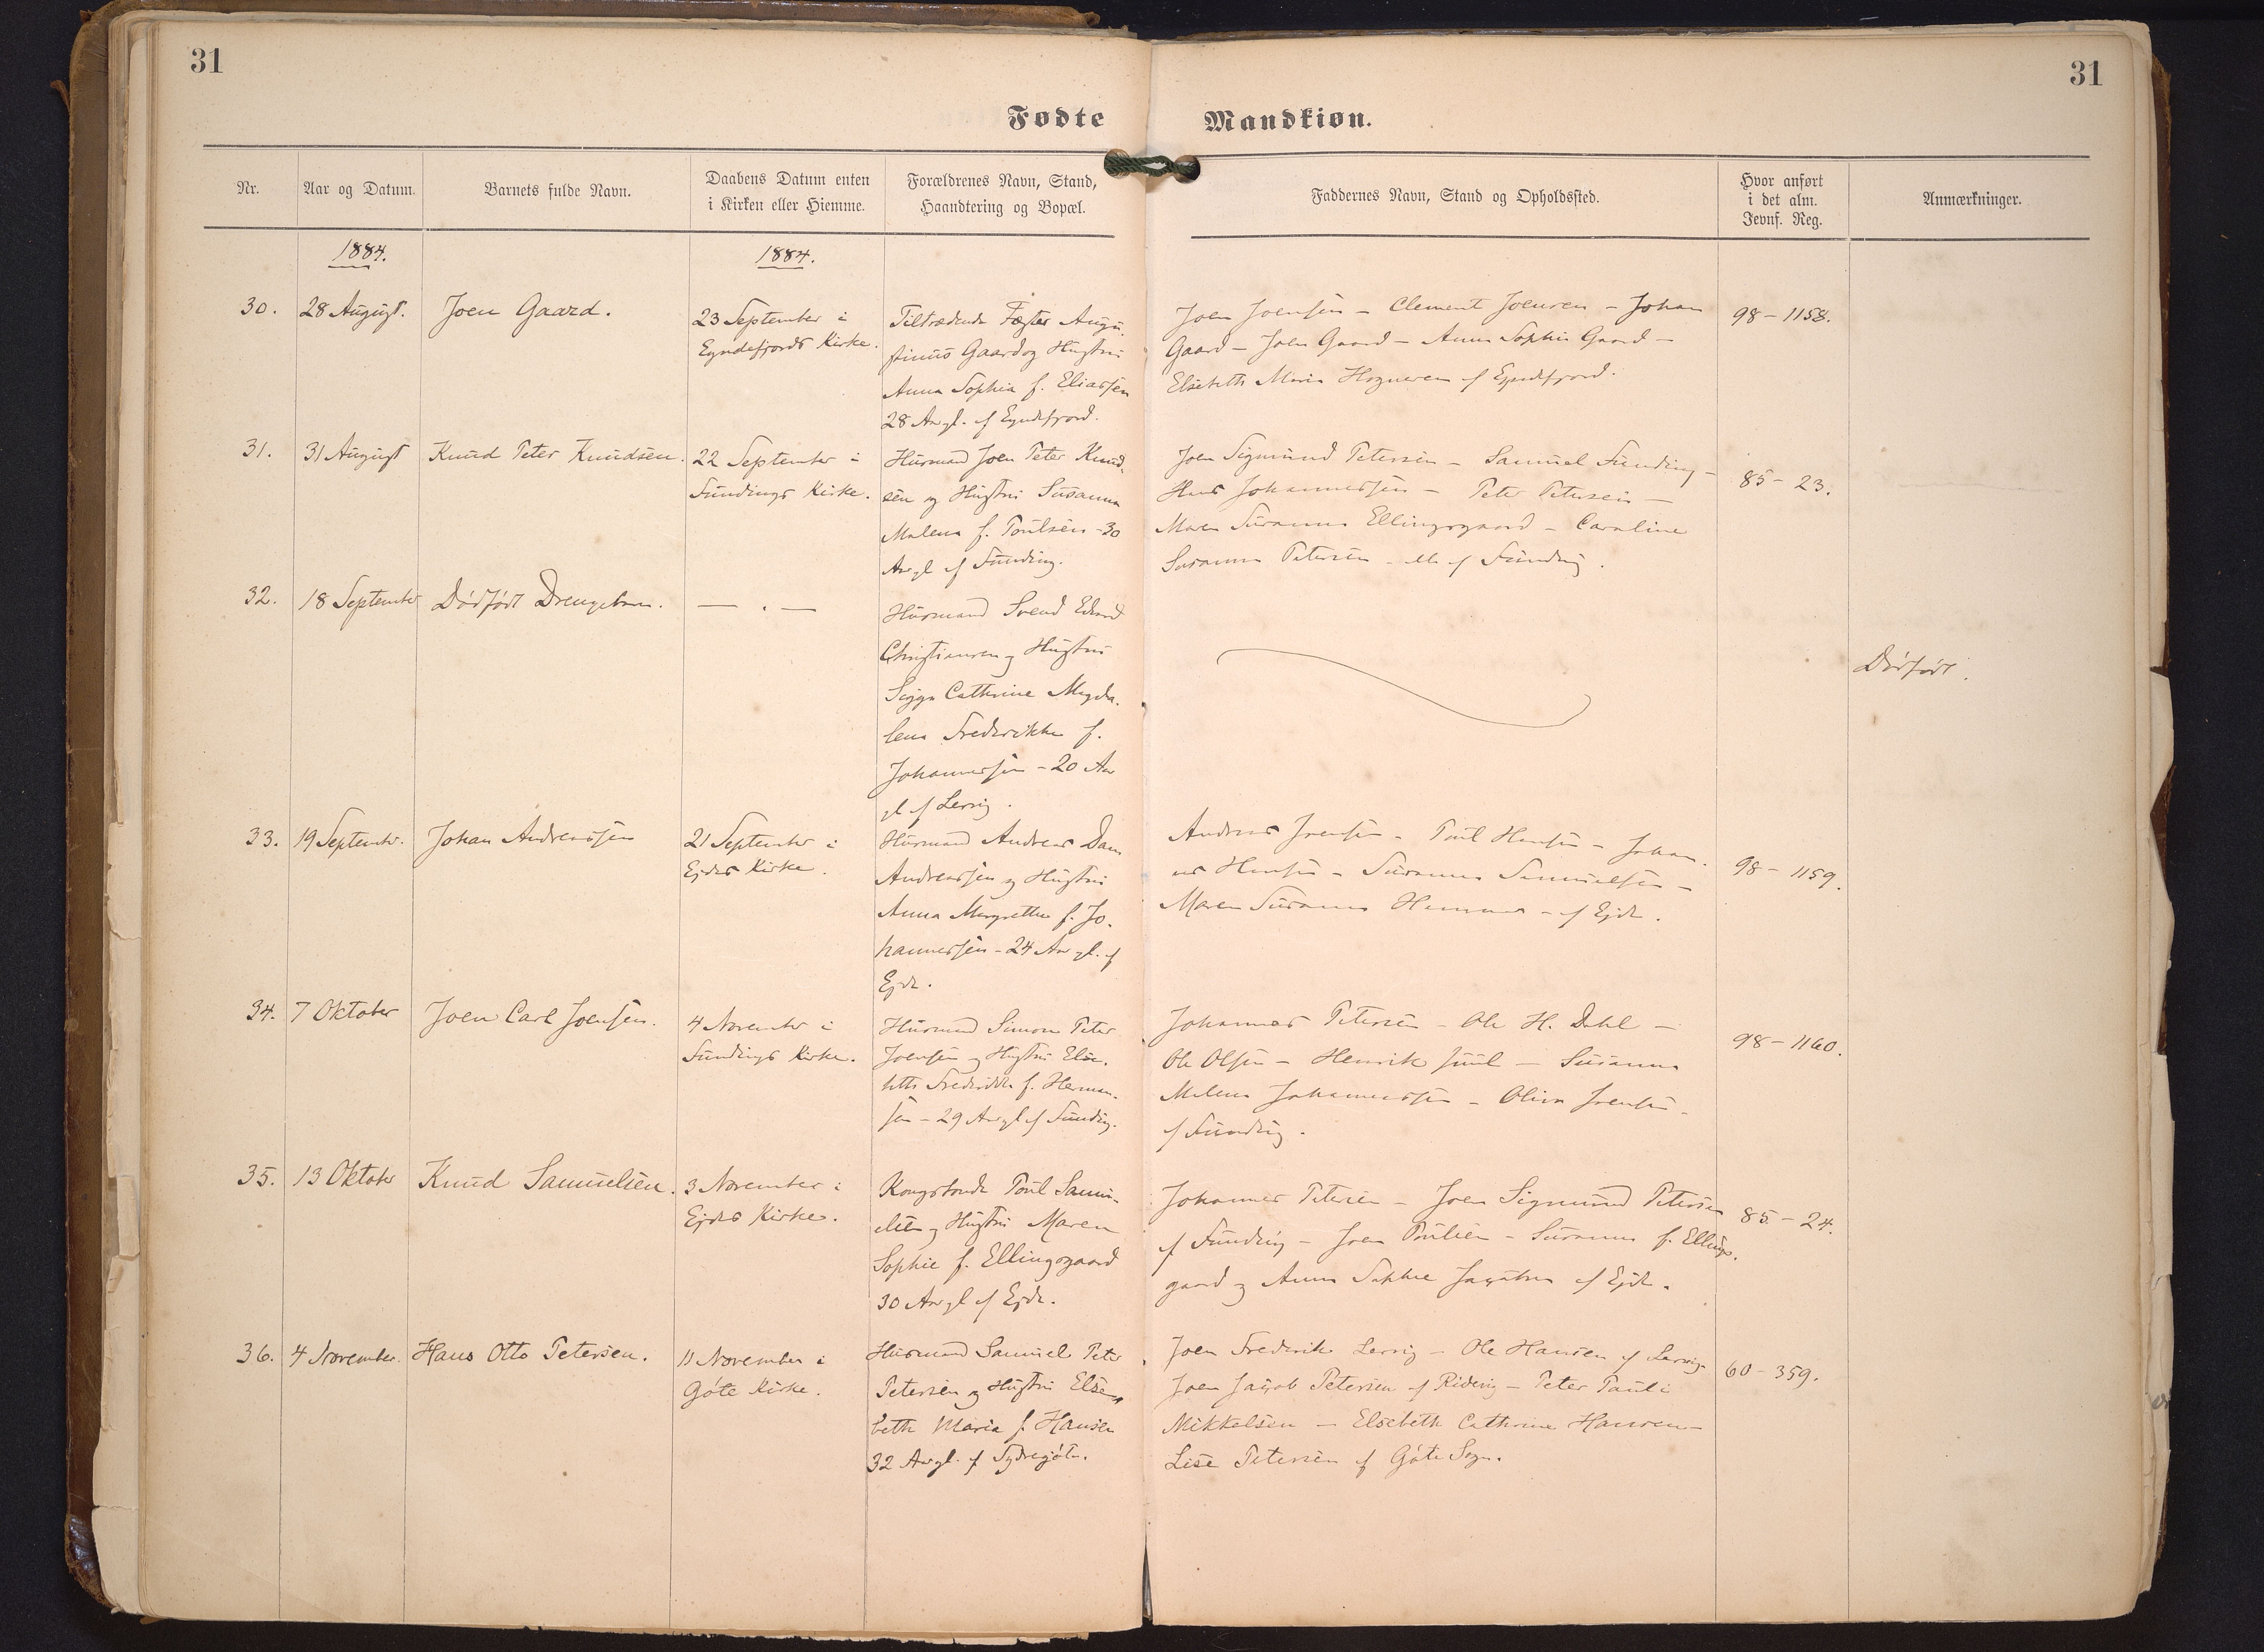 31
31
Fødte
Mandkiøn.
Nr.
Aar og Datum.
Barnets fulde Navn.
Daabens Datum enten
i Kirken eller Hiemme.
Forældrenes Navn, Stand,
Haandtering og Bopæl.
Faddernes Navn, Stand og Opholdssted.
Hvor anført
i det alm.
Jevnf. Reg.
Anmærkninger.
1884.
1884.
30.
28 August.
Joen Gaard.
23 September i
Eyndefjords Kirke.
Tiltrædende Fæster Augu-
stinus Gaard og Hustru
Anna Sophia f. Eliassen
28 Aar gl. af Eyndefjord.
Joen Joensen - Clement Joensen - Johan
Gaard - Joen Gaard - Anna Sophie Gaard -
Elsebeth Maria Hognesen af Eyndefjord.
98 - 1158.
31.
31 August
Knud Peter Knudsen.
22 September i
Fundings Kirke.
Husmand Joen Peter Knud-
sen og Hustru Susanna
Malena f. Poulsen - 30
Aar gl af Funding.
Joen Sigmund Petersen - Samuel Funding -
Hans Johannessen - Peter Petersen -
Maren Susanna Ellingsgaard - Caroline
Susanna Petersen - alle af Funding.
85 - 23.
32.
18 September
Dødfødt Drengebarn.
— . —
Husmand Svend Edvard
Christiansen og Hustru
Cathrine Magda-
lena Frederikke f.
Johannessen - 20 Aar
gl af Lervig.
Dødfødt.
33.
19 September.
Johan Andreassen
21 September i
Ejdes Kirke.
Husmand Andreas Dam
Andreassen og Hustru
Anna Margrethe f. Jo-
hannessen - 24 Aar gl. af
Ejde.
Andreas Joensen - Poul Hansen - Johan-
nes Hansen - Susanna Samuelsen -
Maren Susanna - af Ejde.
98 - 1159.
34.
7 Oktober
Joen Carl Joensen.
4 November i
Fundings Kirke.
Husmand Simon Peter
Joensen og Hustru Else-
beth Frederikke f. Herman-
sen - 29 Aar gl af Funding.
Johannes Petersen - Ole H. Dahl -
Ole Olsen - Henrik Juul - Susanna
Malena Johannessen - Oliva Joensen -
af Funding.
98 - 1160.
35.
13 Oktober
Knud Samuelsen.
3 November i
Ejdes Kirke.
Kongsbonde Poul Samu-
elsen og Hustru Maren
Sophie f. Ellingsgaard
30 Aar gl af Ejde.
Johannes Petersen - Joen Sigmund Petersen
af Funding - Joen Poulsen - Susanna f. Ellings-
gaard og Anna Sophie Jacobsen af Ejde.
85 - 24.
36.
4 November.
Hans Otto Petersen.
11 November i
Gøte Kirke.
Husmand Samuel Peter
Petersen og Hustru Else-
beth Maria f. Hansen
32 Aar gl. af Sydregøte.
Joen Frederik Lervig - Ole Hansen af Lervig -
Joen Jacob Petersen af Ridevig - Peter Pauli
Mikkelsen - Elsebeth Cathrine Hansen -
Lise Petersen af Gøte Sogn.
60 - 359.
Dødfødt.